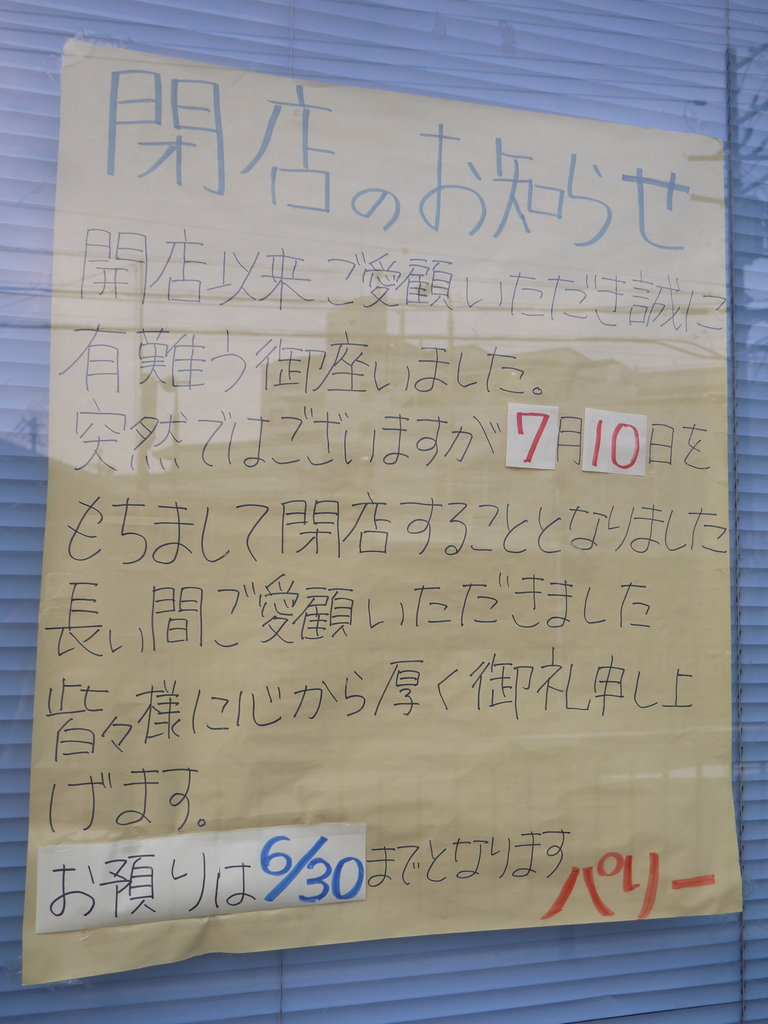 閉店のお知らせ
開店以来ご愛顧いただき誠に
有難う御座いました。
突然ではございますが7月10日を
もちまして閉店することとなりました
長い間ご愛顧いただきました
皆々様に心から厚く御礼申し上
げます。
お預りは6/30までとなります
パリー